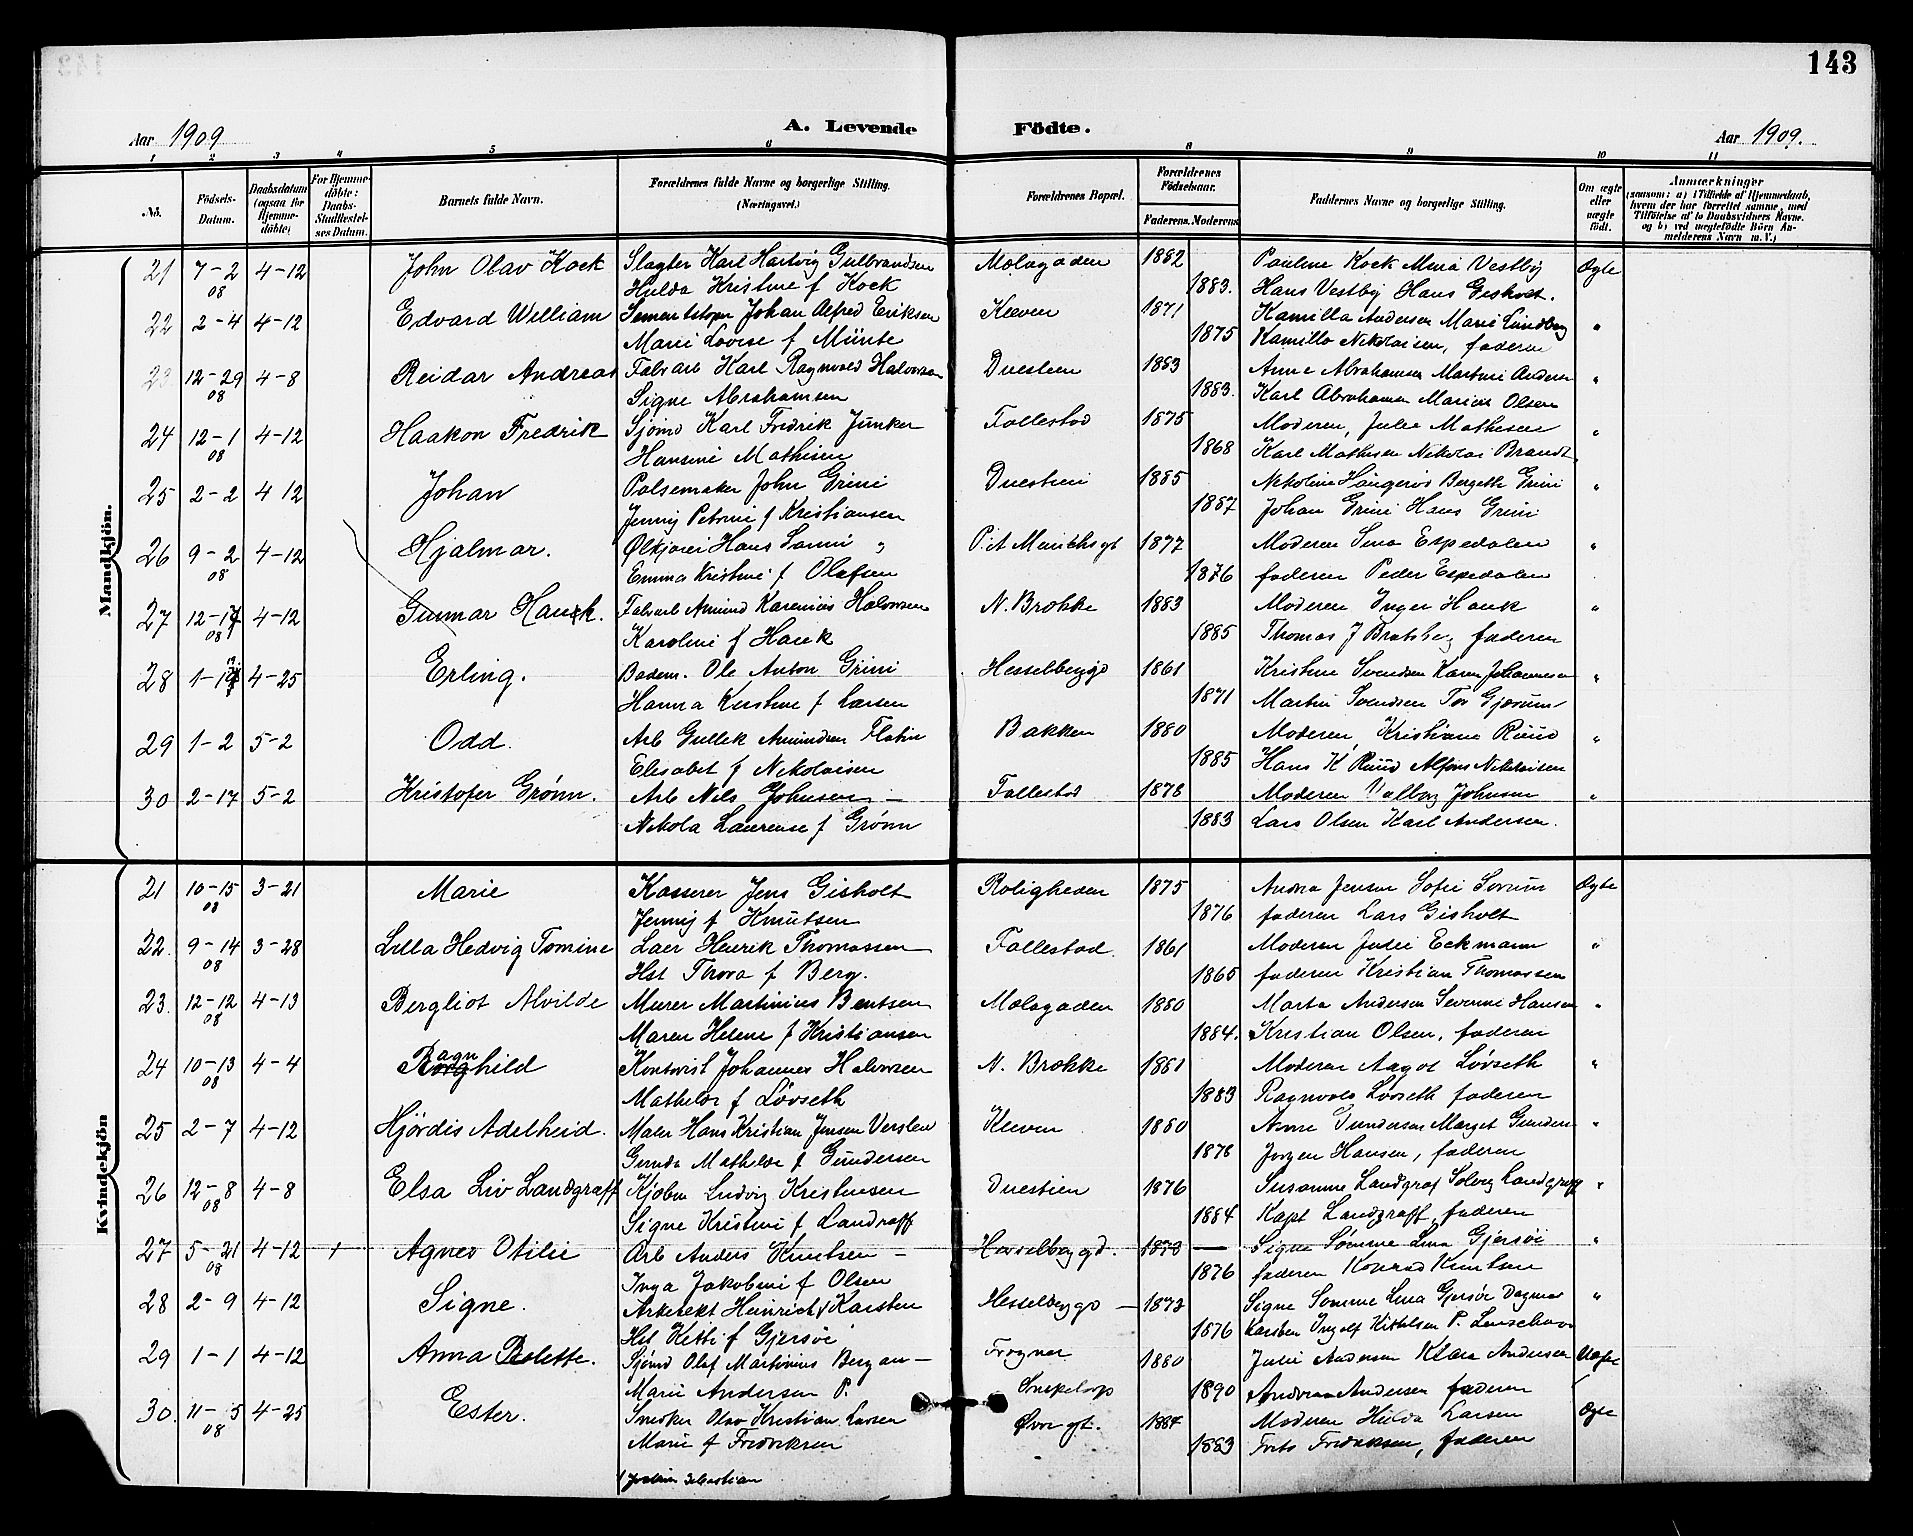 143
Aar 1909
A. Levende
Födte.
Aar 1909.
1 2 3 4 5 6 8 9 10 11
No. Födsels-Datum. Daabsdatum (ogsaa for Hjemme-döbte) For Hjemme-döbte: Daabs-Stadfæstel-ses Datum. Barnets fulde Navn. Forældrenes fulde Navne og borgerlige Stilling. (Næringsvei.) Forældrenes Bopæl. Forældrenes Födselsaar. Faderens. Moderens. Faddernes Navne og borgerlige Stilling. Om ægte eller uægte födt. Anmærkninger (saasom: a) i Tilfælde af Hjemmedaab, hvem der har forrettet samme, med Tilföielse af to Daabsvidners Navne. og b) ved uægtefödte Börn An-melderens Navn m. V.)
Mandkjön.
21 7-2 4-12 John Olav Kock Slagter Karl Hartvig Gulbrandsen Molagaden 1882 Pauline Kock Mina Vestby Ægte
08 Hulda Kristine f Kock 1883. Hans Vestby Hans Gisholt.
22 2-4 4-12 Edvard William Sementstøper Johan Alfred Eriksen Kleven 1871 Kamilla Andersen Marie Lundberg "
Marie Lovise f Münte 1875 Kamilla Nikolaisen, faderen
23 12-29 4-8 Reidar Andreas Fabarb Karl Ragnvald Halvorsen Duestien 1883 Anna Abrahamsen Martine Andersen "
08 Signe Abrahamsen 1883. Karl Abrahamsen Marius Olsen
24 12-1 4-12 Haakon Fredrik Sjømd Karl Fredrik Junker Follestad 1875 Moderen, Julie Mathisen "
08 Hansine Mathisen 1868 Karl Mathisen Nikolai Brandt
25 2-2 4 12 Johan Pølsemaker John Grini Duestien 1885 Nikoline Haugerød Bergette Grini "
Jenny Petrine f Kristiansen 1887 Johan Grini Hans Grini
26 9-2 4-12 Hjalmar. Ølkjører Hans Sanni P.A Munchsgt 1877 Moderen Sina Espedalen "
08 Emma Kristine f Olafsen 1876 faderen Peder Espedalen
27 12-17 4-12 Gunnar Hauk. Fabarb Amund Karenius Halvorsen N. Brokke 1883 Moderen Inger Hauk "
08 Karoline f Hauk 1885 Thomas J Bratsberg faderen
28 4-25 Erling. Bødm. Ole Anton Grini Hesselberggd 1861 Kristine Svendsen Karen Johannesen "
Hanna Kristine f Larsen 1871 Martin Svendsen Tor Gjerum
29 1-2 5-2 Odd. Arb Gullik Amundsen Flatin Bakken 1880 Moderen Kristiane Ruud "
Elisabet f Nikolaisen 1885 Hans K Ruud Alfons Nikolaisen
30 2-17 5-2 Kristofer Grønn. Arb Nils Johnsen Follestad 1878 Moderen Valborg Johnsen "
Nikola Laurense f Grønn 1883 Lars Olsen Karl Andersen.
Kvindekjön
21 10-15 3-21 Marie Kasserer Jens Gisholt Roligheden 1875 Andrea Jensen Sofie Sørum Ægte
08 Jenny f Knutsen 1876 faderen Lars Gisholt
22. 9-14 3-28 Lilla Hedvig Tomine Laer Henrik Thomassen Follestad. 1861 Moderen Julie Eckmann "
08 Hst Thora f Berg. 1865 faderen Kristian Thomassen
23. 12-12 4-13 Bergliot Alvilde Murer Martinius Bentsen Molagaden 1880 Marta Andersen Severine Hansen "
08 Maren Helene f Kristiansen 1884. Kristian Olsen, faderen
24 10-13 4-4 Ragnhild Kontorist Johannes Halvorsen N. Brokke 1881 Moderen Aagot Løvseth "
08 Mathilde f Løvseth 1883 Ragnvald Løvseth faderen
25 2-7 4-12 Hjördis Adelheid. Maler Hans Kristian Jensen Verslev Kleven 1880 Anne Gundersen Marget Gundersen "
Gunda Mathilde f Gundersen 1878 Jørgen Hansen, faderen
26 12-8 4-8 Elsa Liv Landgraff Kjøbm Ludvig Kristensen Duestien 1876 Susanne Landgraf Solveig Landgraff "
08 Signe Kristine f Landraff 1884 Kapt Landgraff, faderen
27 5-21 4-12 1 Agnes Otilie Arb Anders Knutsen Hesselberggd. 1873 Signe Sømme Lina Gjersøe "
08 Inga Jakobine f Olsen 1876 faderen Konrad Knutsen
28 2-9 4-12 Signe. Arkitekt Heinrich Karsten Hesselberggd 1872 Signe Sømme Lina Gjersøe Dagmar "
Hst Kitti f Gjersøe 1876 Karsten Ingolf Kittilsen P.
29 1-1 4-12 Anna Bolette. Sjømd Olaf Martinius Bergan Frogner 1880 Julie Andersen Klara Andersen Uægte
Marie Andersen P. 1890 Andreas Andersen faderen
30. 11-5 4-25 Ester. Snedker Olav Kristian Larsen Øvregt. 1884 Moderen Hilda Larsen Ægte
08 Marie f Fredriksen 1883 Frits Fredriksen, faderen
Sebastian